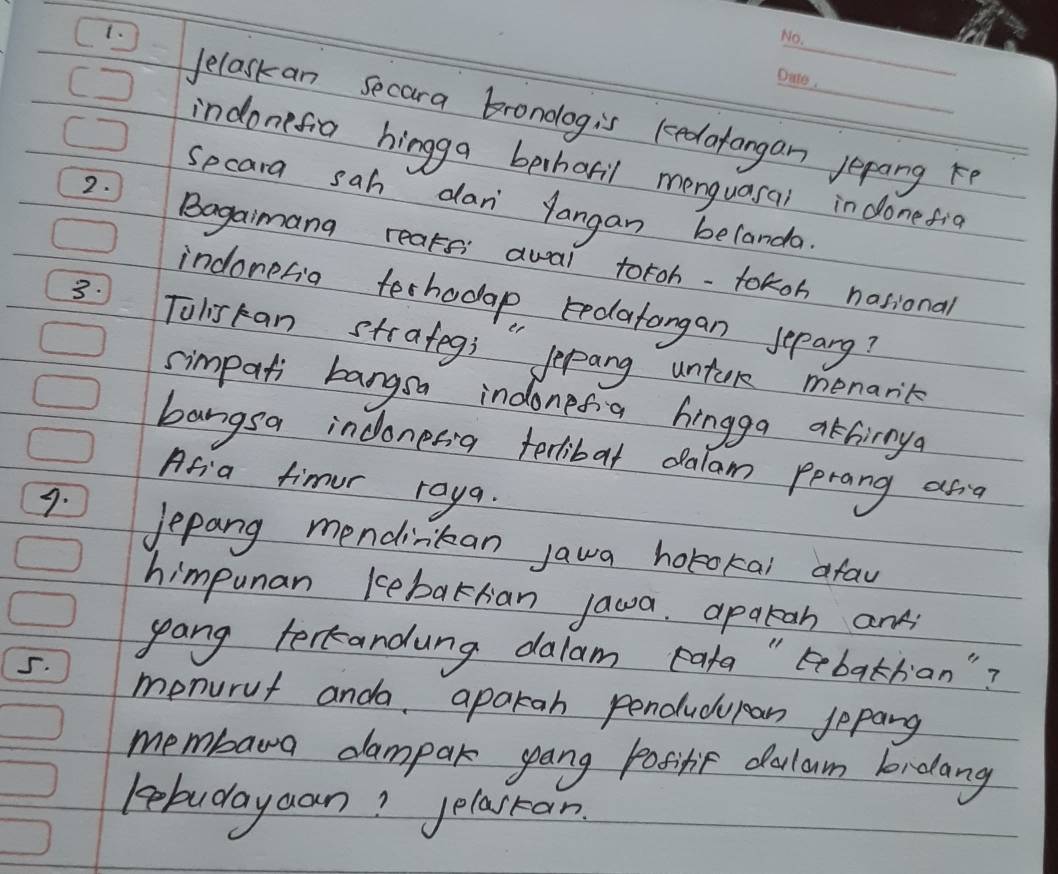 No.
Date.
1. Jelaskan secara kronologis kedatangan jepang ke
indonesia hingga berhasil menguasai indonesia
secara sah dari tangan belanda.
2. Bagaimana reaksi awal tokoh - tokoh nasional
indonesia terhadap kedatangan jepang?
3. Tuliskan strategi" jepang untuk menarik
simpati bangsa indonesia hingga akhirnya
bangsa indonesia terlibat dalam perang asia
Asia timur raya.
4. jepang mendirikan jawa hokokai atau
himpunan kebaktian jawa. apakah arti
yang terkandung dalam kata "kebaktian"?
5. menurut anda, apakah pendudukan jepang
membawa dampak yang positif dalam bidang
kebudayaan? jelaskan.